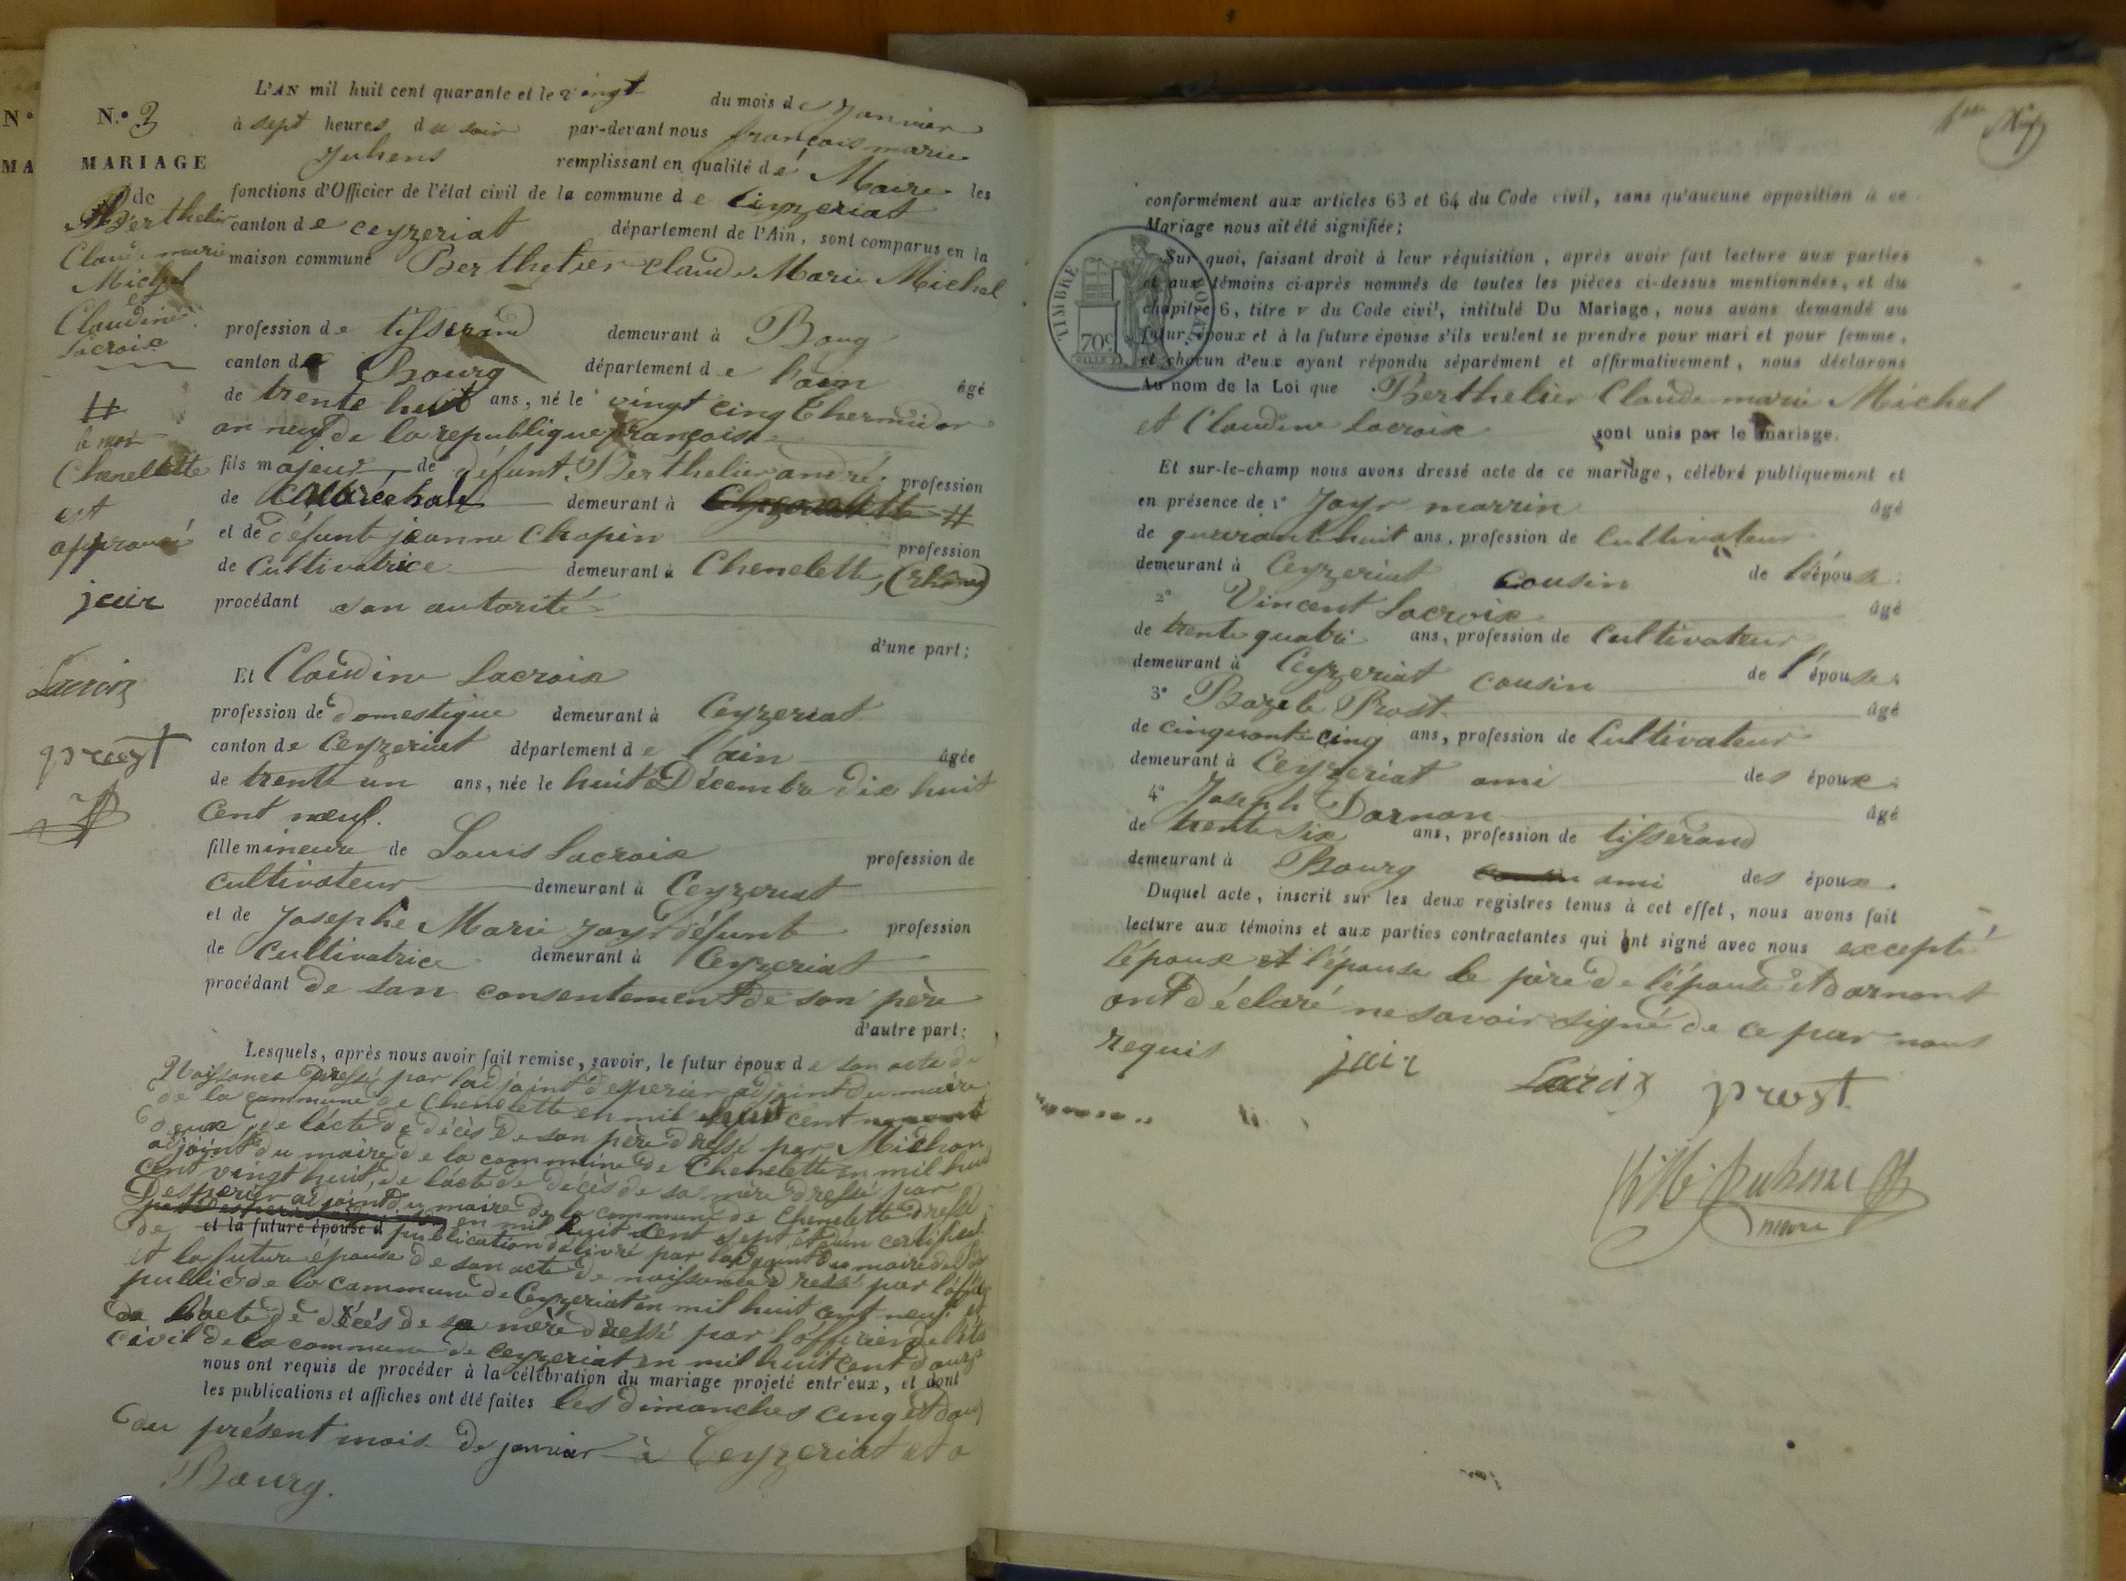 N.° 3
MARIAGE
de
Berthelier
Claude marie
Michel
et
Claudine
Lacroix
#
le mot
Chenelette
est
approuvé
jair
Lacroix
prost
L'AN mil huit cent quarante et le vingt du mois de Janvier
à sept heures du soir par-devant nous françois marie
Juhens remplissant en qualité de Maire les
fonctions d'Officier de l'état civil de la commune de Ceyzeriat
canton de ceyzeriat département de l'Ain, sont comparus en la
maison commune Berthelier Claude Marie Michel
profession de tisserand demeurant à Bourg
canton de Bourg département de l'ain âgé
de trente huit ans, né le vingt cinq thermidor
an neuf de la republique française
fils majeur de défunt Berthelier andré profession
de demeurant à #
et de défunte jeanne Chapin profession
de Cultivatrice demeurant à Chenelette, (Rhône)
procédant son autorité
d'une part;
Et Claudine Lacroix
profession de domestique demeurant à Ceyzeriat
canton de Ceyzeriat département de l'ain âgée
de trente un ans, née le huit Décembre dix huit
Cent neuf.
fille mineure de Louis Lacroix profession de
cultivateur demeurant à Ceyzeriat
et de Josephe Marie Jayr défunte profession
de Cultivatrice demeurant à Ceyzeriat
procédant de san consentement de son père
d'autre part:
Lesquels, après nous avoir fait remise, savoir, le futur époux de son acte de
Naissance Dressé par l'adjoint desperier adjoint du maire
de la commune de Chenelette en mil huit cent
Deux, de l'acte de décès de son père dressé par Michon
adjoint du maire de la commune de Chenelette en mil huit
Cent vingt huit, de l'acte de décès de sa mère dressé par
Desperier adjoint du maire de la commune de Chenelette dressé
en mil huit cent sept, et d'un certificat
de et la future épouse d publication délivré par l'adjoint du maire de
et la future épouse de son acte de naissance dressé par l'officier
public de la commune de Ceyzeriat en mil huit cent neuf et
de l'acte de décés de sa mère dressé par l'officier de l'état
civil de la commune de ceyzeriat en mil huit cent douze
nous ont requis de procéder à la célébration du mariage projeté entr'eux, et dont
les publications et affiches ont été faites les dimanches cinq et douze
du présent mois de janvier à Ceyzeriat et a
Bourg.
conformément aux articles 63 et 64 du Code civil, sans qu'aucune opposition à ce
Mariage nous ait été signifiée;
Sur quoi, faisant droit à leur réquisition, après avoir fait lecture aux parties
et aux témoins ci-après nommés de toutes les pièces ci-dessus mentionnées, et du
chapitre 6, titre v du Code civil, intitulé Du Mariage, nous avons demandé au
futur époux et à la future épouse s'ils veulent se prendre pour mari et pour femme,
et chacun d'eux ayant répondu séparément et affirmativement, nous déclarons
Au nom de la Loi que Berthelier Claude marie Michel
et Claudine Lacroix sont unis par le mariage.
TIMBRE ROYAL
70c
Et sur-le-champ nous avons dressé acte de ce mariage, célébré publiquement et
en présence de 1° Jayr marrin âgé
de quarante huit ans, profession de Cultivateur
demeurant à Ceyzeriat cousin de l'épouse.
2° Vincent Lacroix âgé
de trente quatre ans, profession de Cultivateur
demeurant à Ceyzeriat cousin de l'épouse.
3° Bazele Prost âgé
de cinquante cinq ans, profession de Cultivateur
demeurant à Ceyzeriat ami des époux.
4° Joseph Darnon âgé
de trente six ans, profession de tisserand
demeurant à Bourg cousin ami des époux.
Duquel acte, inscrit sur les deux registres tenus à cet effet, nous avons fait
lecture aux témoins et aux parties contractantes qui ont signé avec nous excepté
l'époux et l'épouse le père de l'épouse et darnont
ont déclaré ne savoir signé de ce par nous
requis
jair Lacroix prost
maire